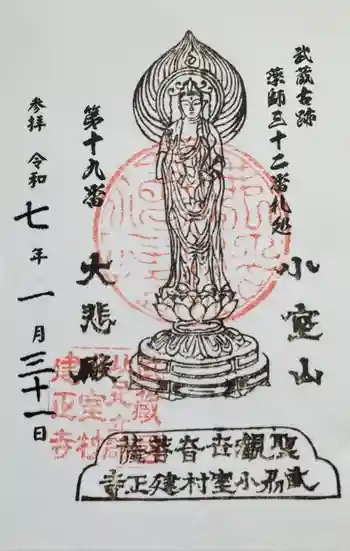 武蔵古跡
薬師三十二番札処
小室山
第十九番
大悲殿
参拝 令和七年一月三十一日
聖観世音菩薩
武州小室村建正寺